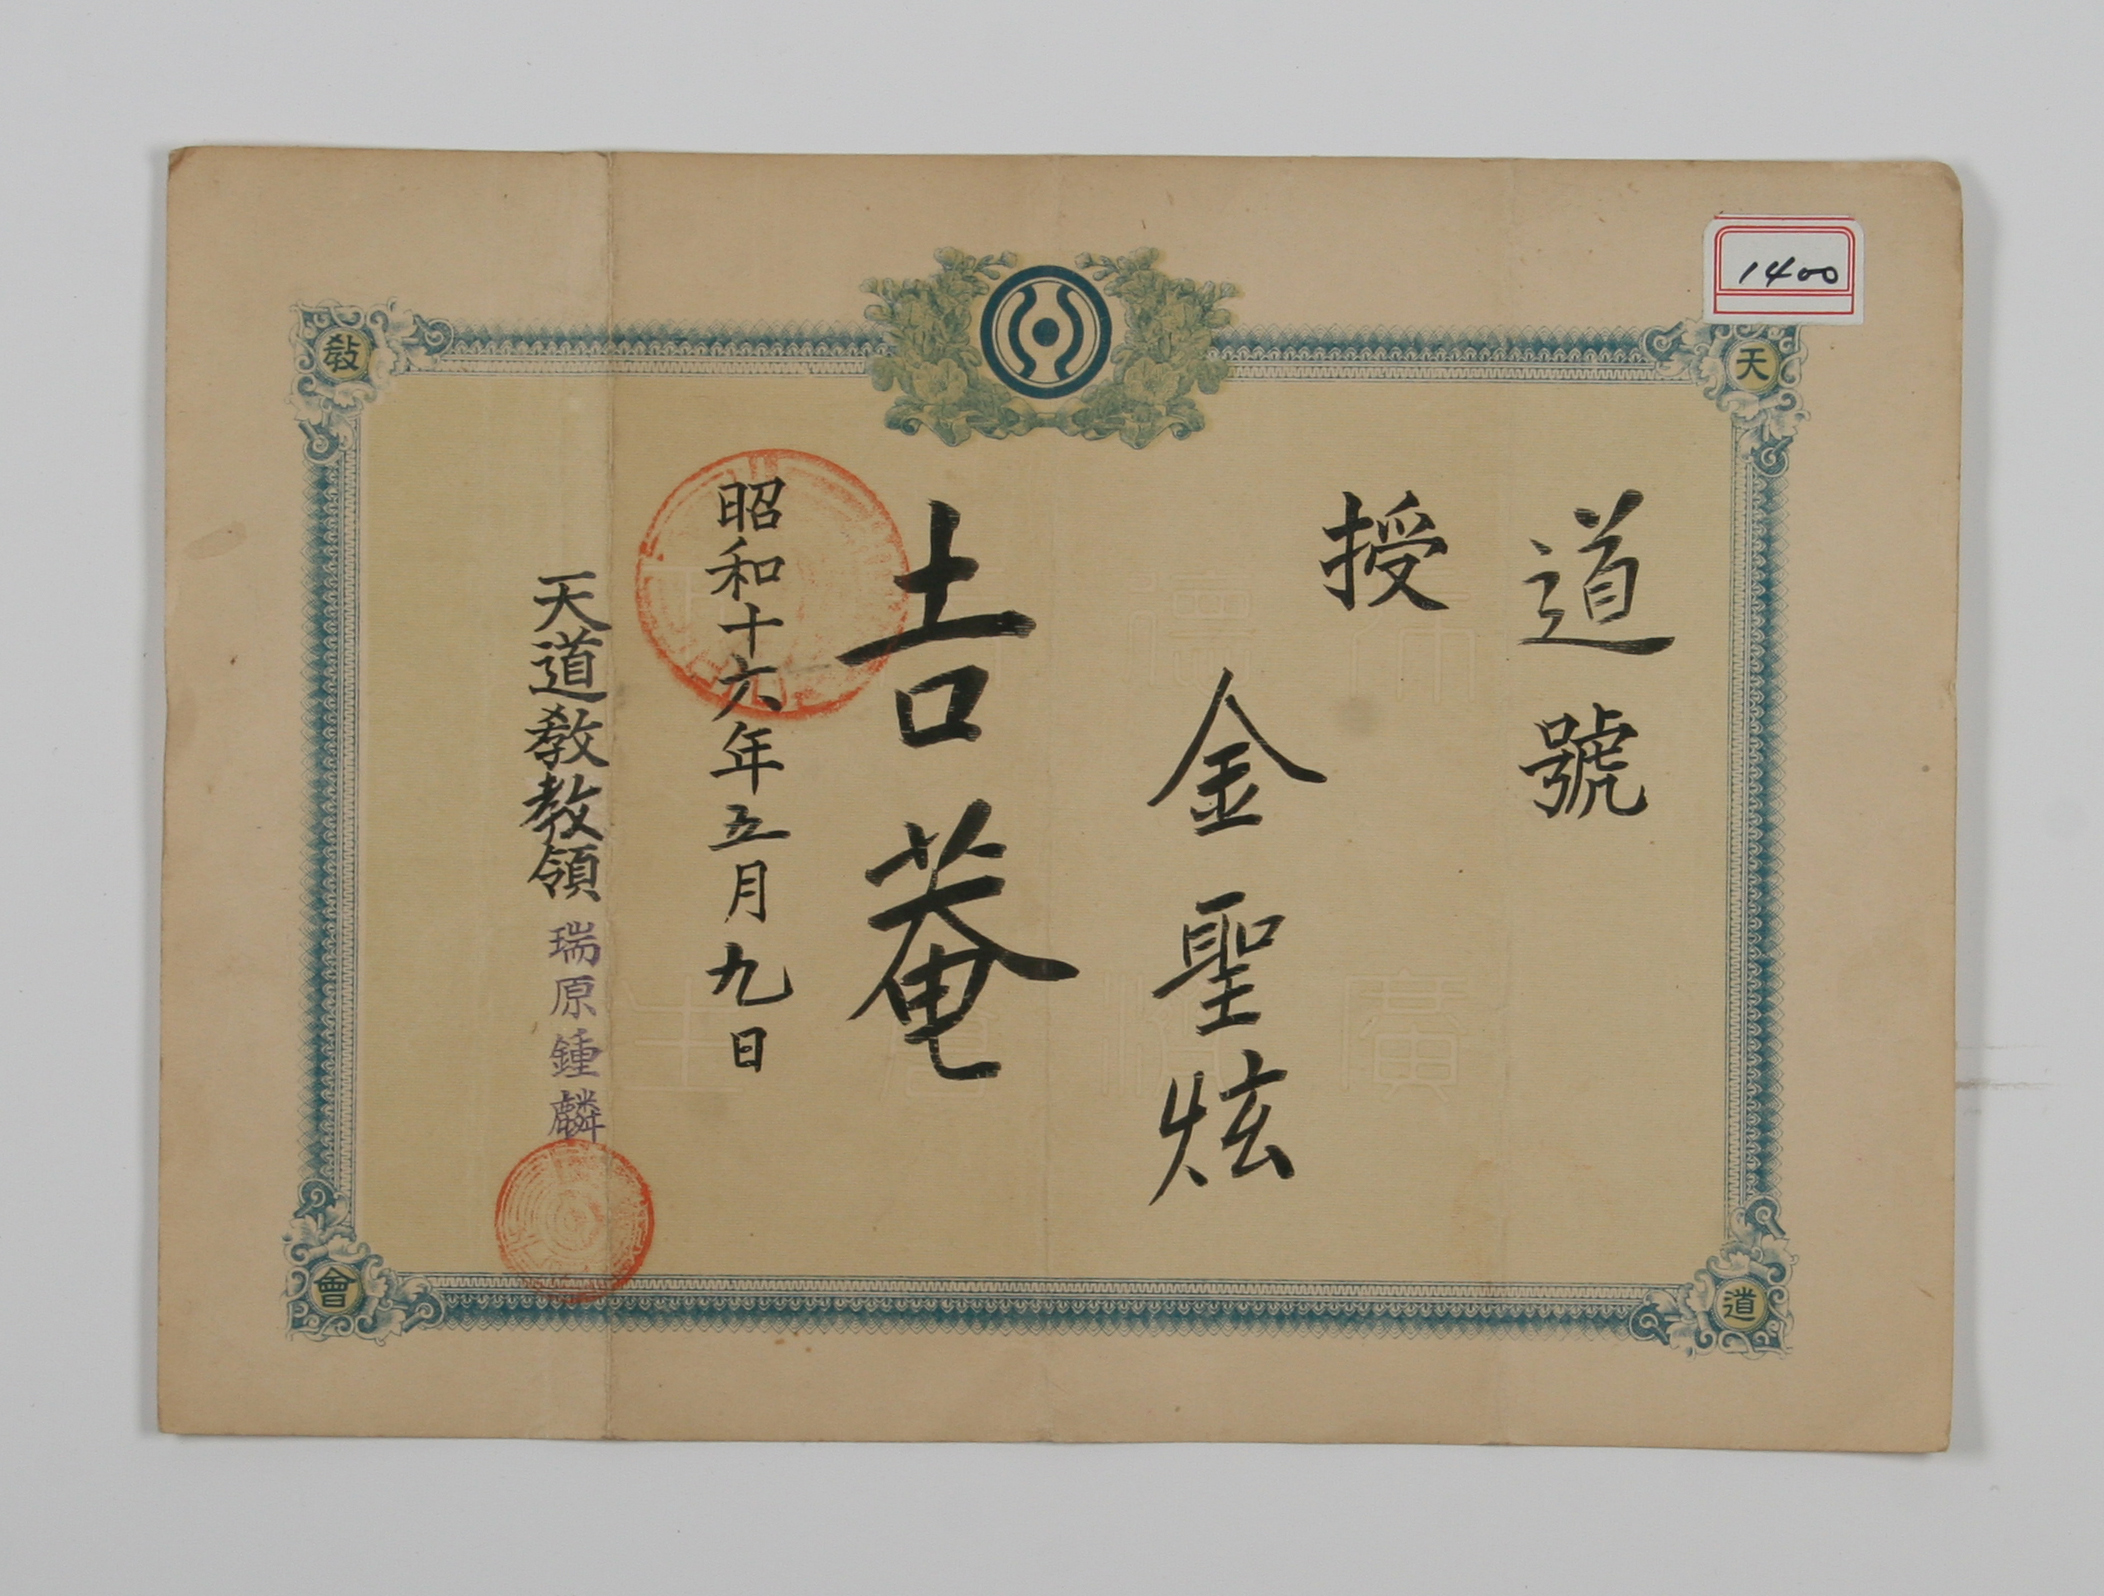 1400
天
道
敎
會
道號
授
金聖炫
吉菴
昭和十六年五月九日
天道敎敎領 瑞原鍾麟